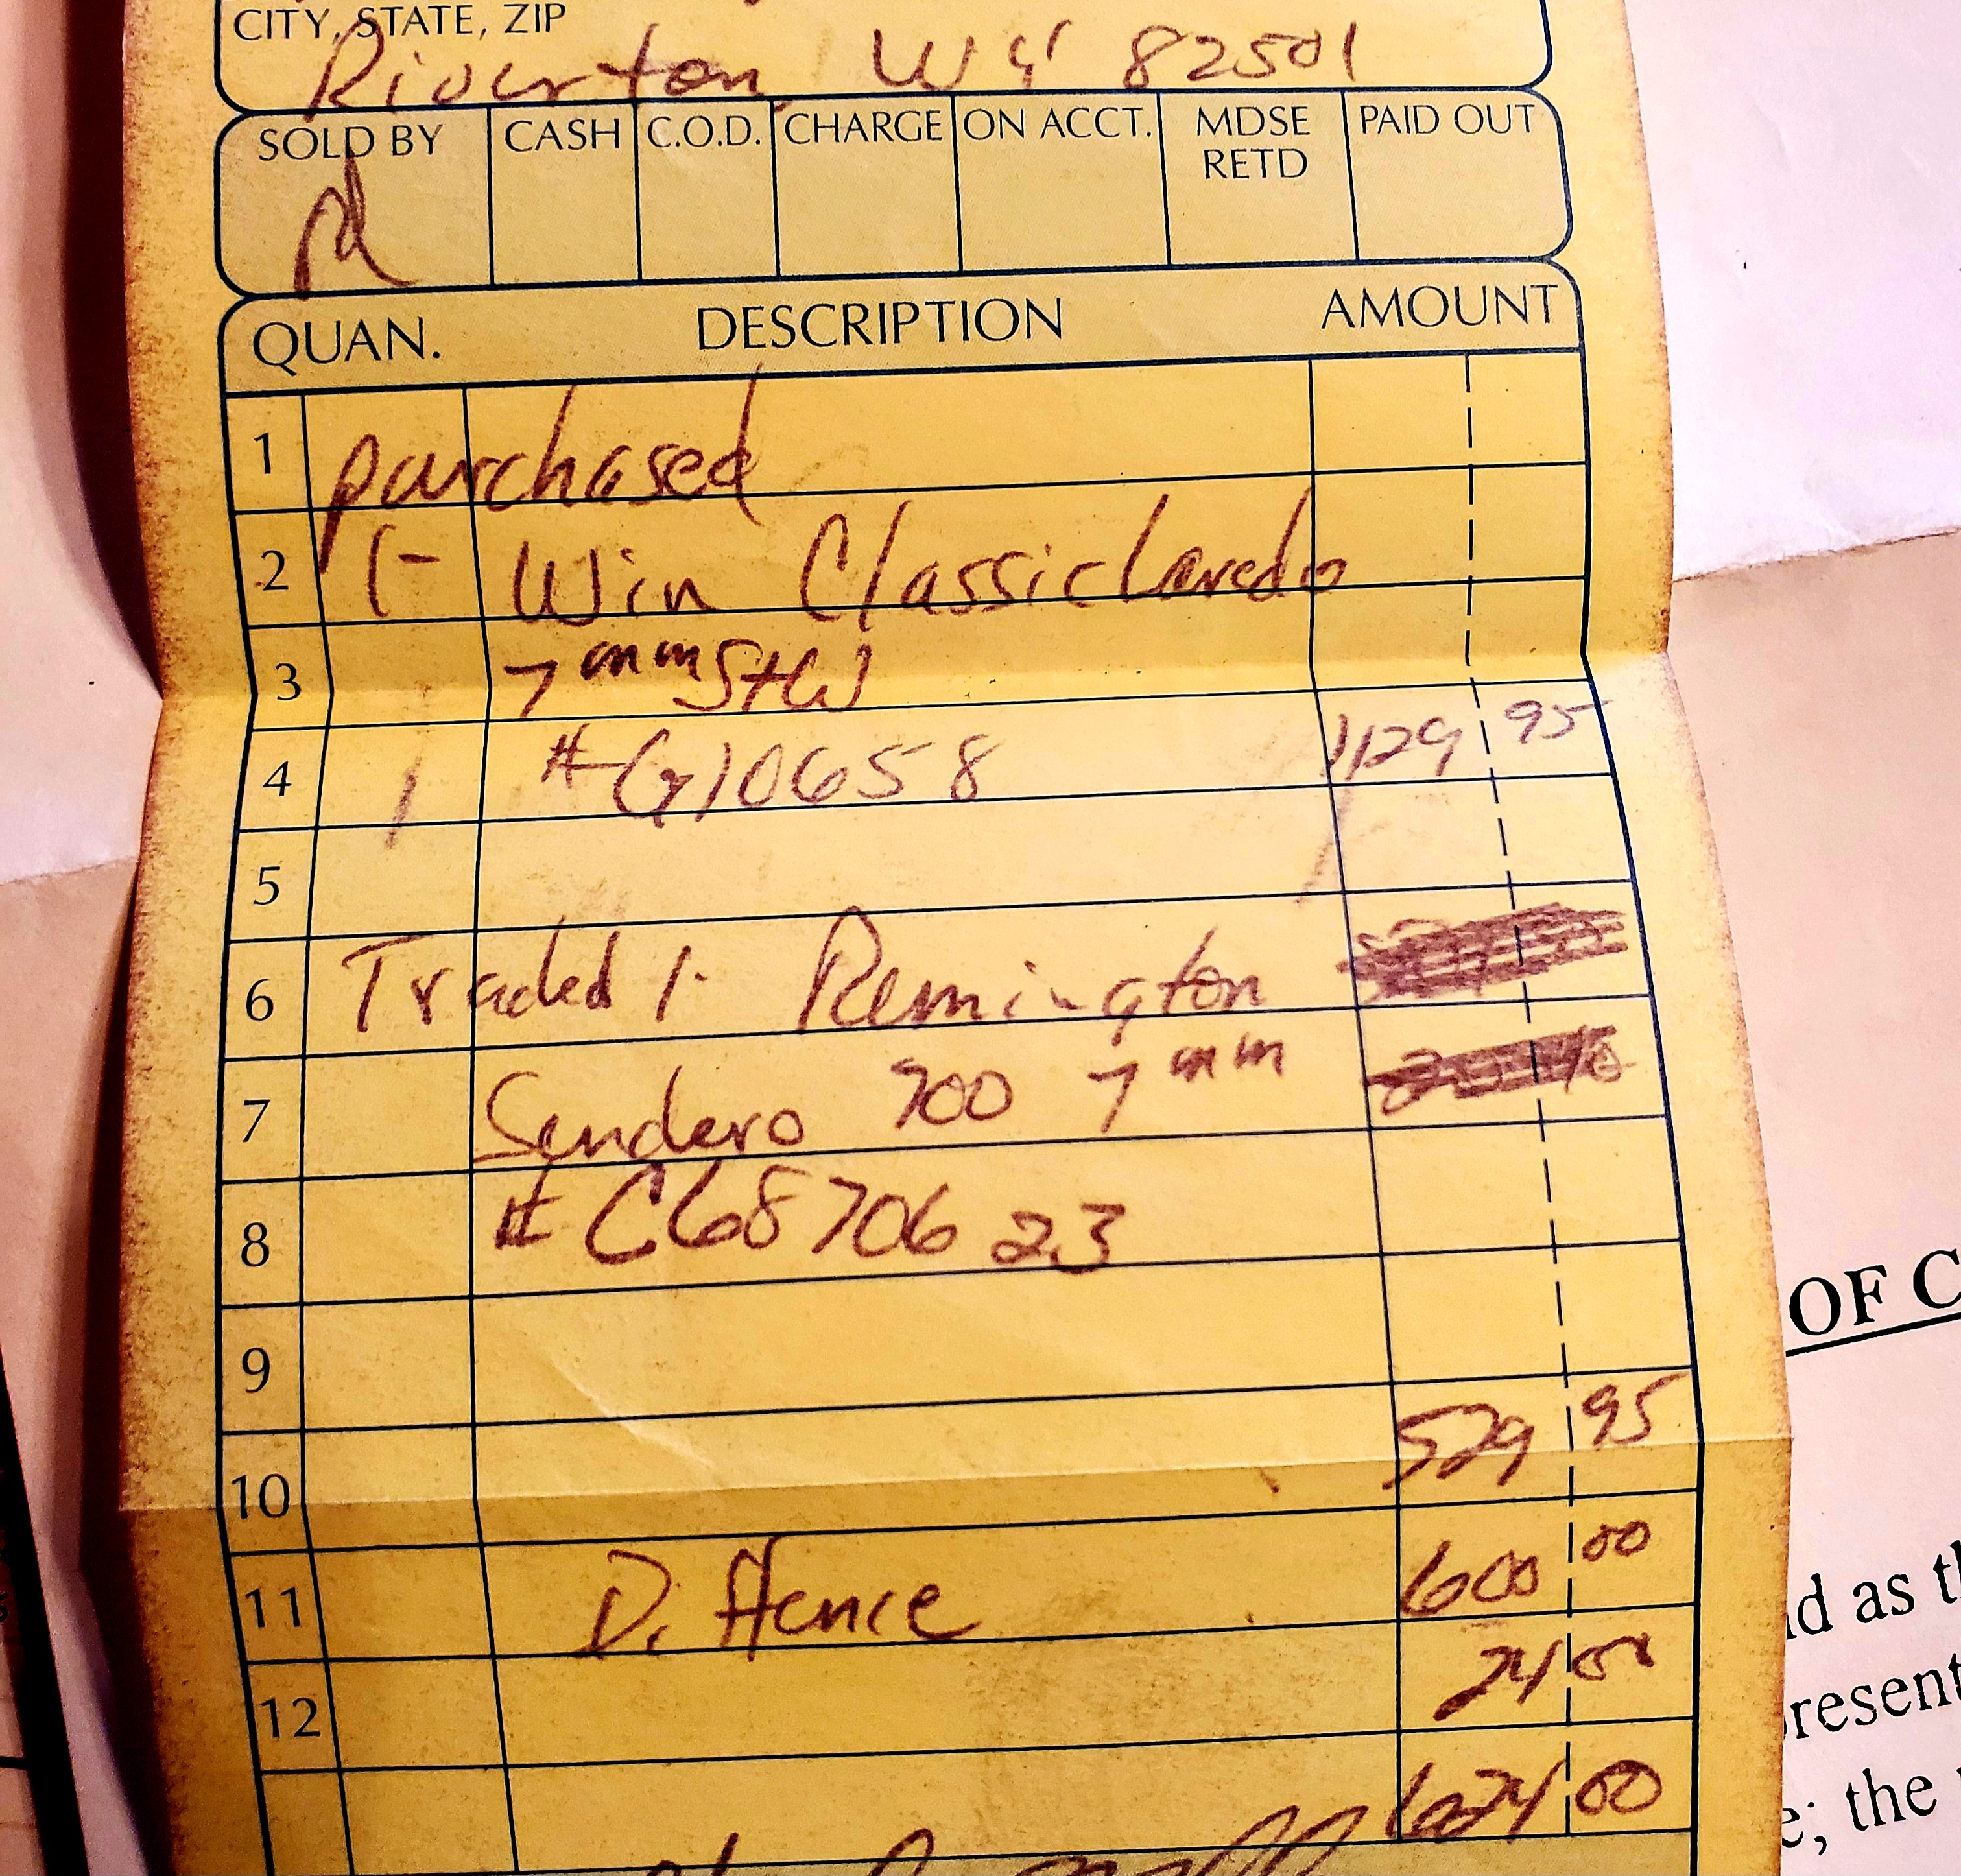 CITY, STATE, ZIP
Riverton, WY 82501
SOLD BY CASH C.O.D. CHARGE ON ACCT. MDSE RETD PAID OUT
QUAN. DESCRIPTION AMOUNT
1 purchased
2 1- Win Classic Laredo
3 7mm StW
4 1 #G10658 1129 95
5
6 Traded 1- Remington
7 Sendero 700 7mm
8 # C6870623
9
10 529 95
11 Diffence 600 00
12 24 00
624 00
OF C
nd as th
present
e; the